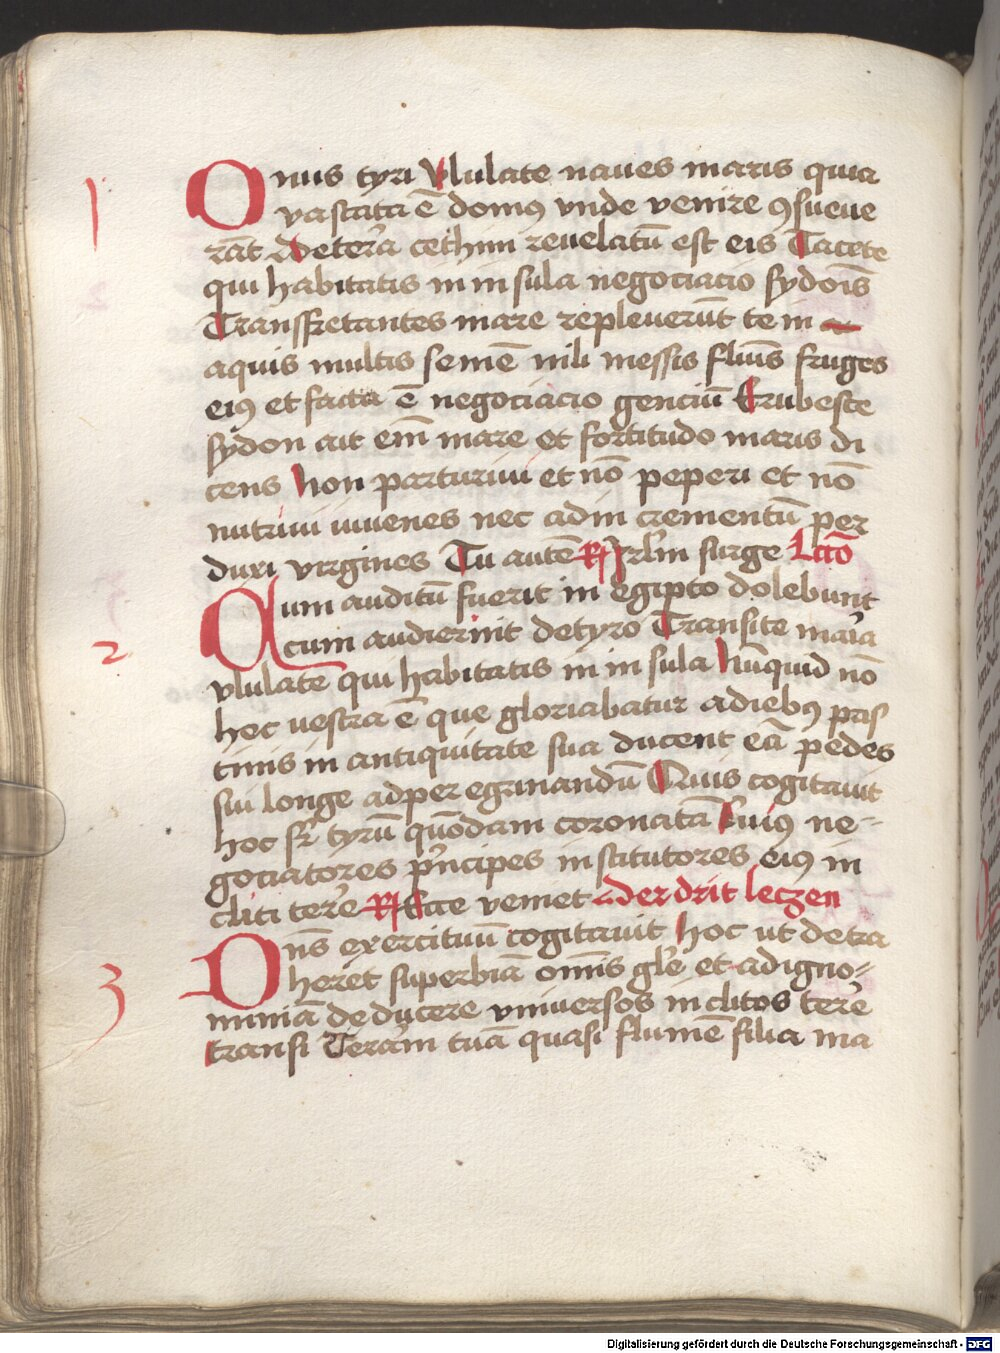 1
Onus tyri Vlulate naues maris quia
vastata ē domꝯ vnde venire ꝯsueue
rāt De tera cethim reuelatū est eis Tacete
qui habitatis in in sula negociacio sydoīs
Transfretantes mare repleuerūt te in
aquis multis semē nili messis fluuīs fruges
eiꝯ et facta ē negociacio genciū Erubesce
sydon ait em̄ mare et fortitudo maris di
cens Non parturiui et nō peperi et nō
nutriui iuuenes nec adin crementū per
duxi virgines Tu autē R Irlm surge Lctō
2
Cum auditū fuerit in egipto dolebunt
cum audierint detyro Transite maria
vlulate qui habitatis in in sula Nūquid nō
hec uestra ē que gloriabatur adiebꝯ pris
tinis in antiquitate sua ducent eā pedes
sui longe adper egrinandū Quis cogitauit
hoc sr̄ tyrū quōdam coronatā Cuiꝯ ne-
gociatores pn̄cipes institutores eiꝯ in
cliti tere R Ecce veniet Der drit leczen
3
Dn̄s exercituū cogitauit hoc ut detra
heret superbiā omīs gle et adigno-
miniā deducere vniuersos inclitos tere
transi Terām tuā quasi flumē filia ma
Digitalisierung gefördert durch die Deutsche Forschungsgemeinschaft - DFG